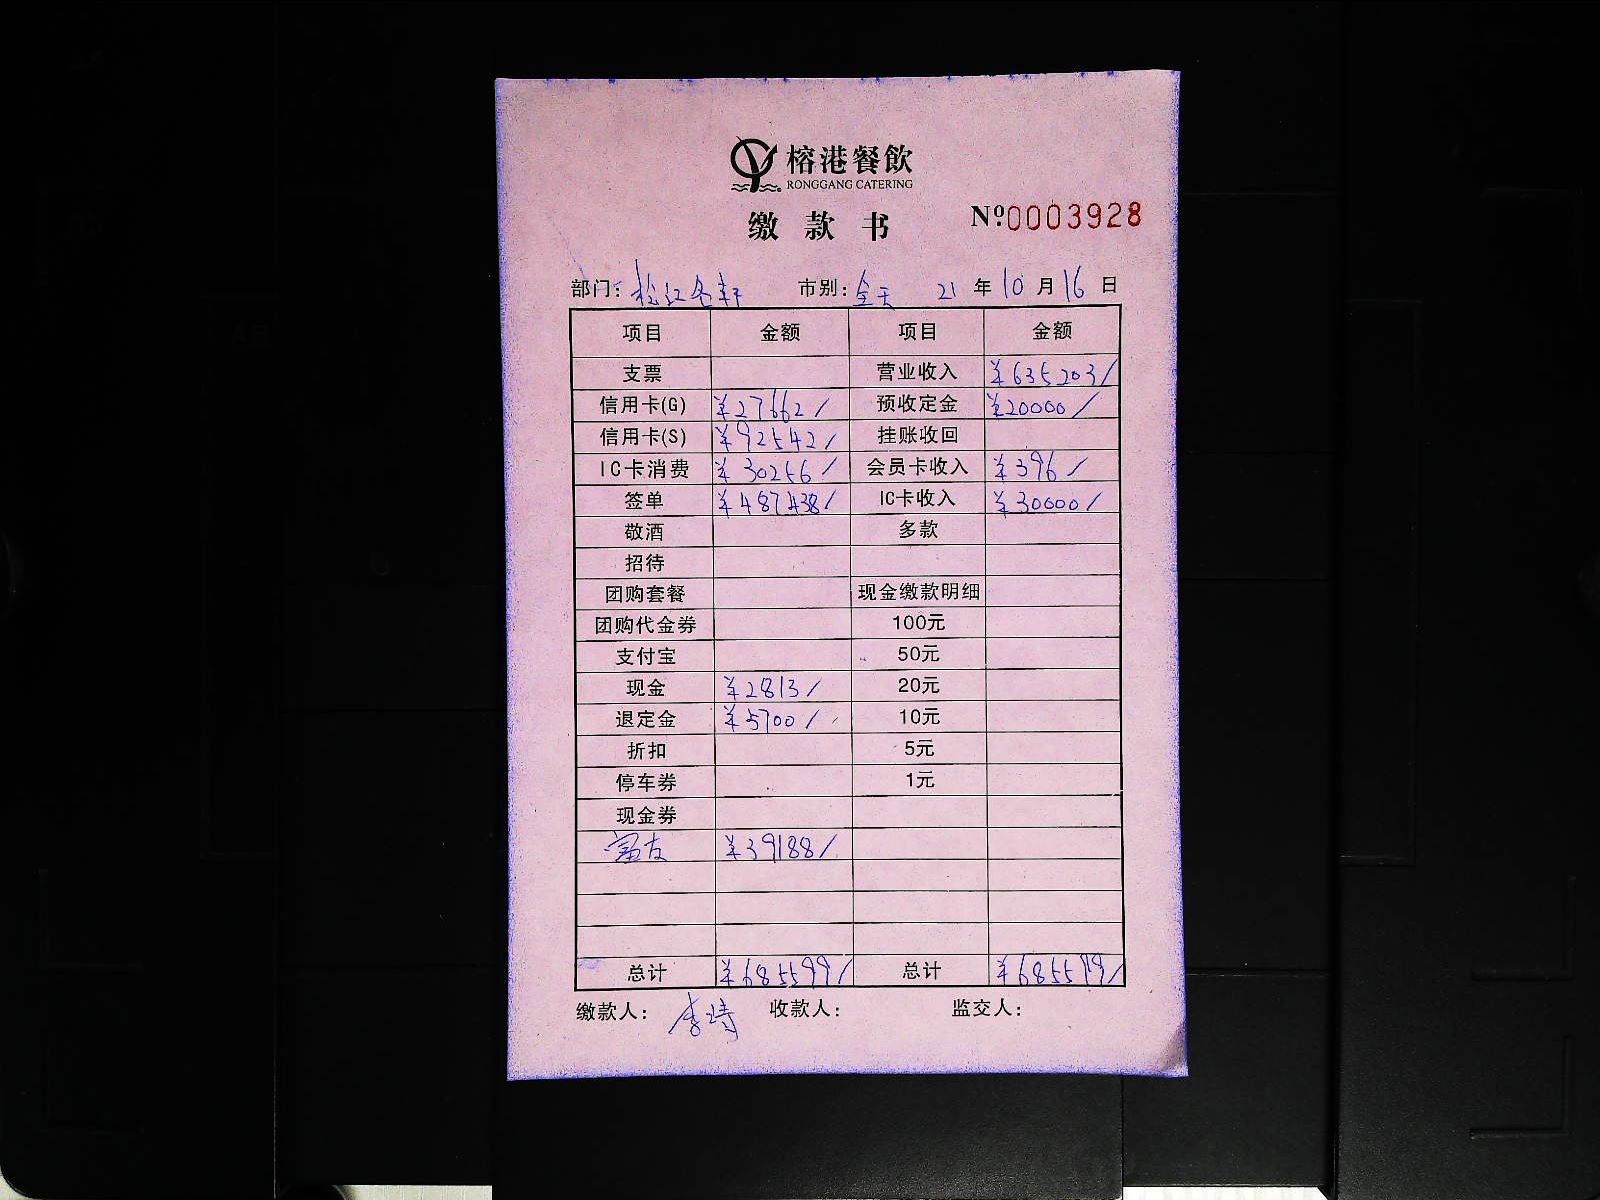 榕港餐飲
RONGGANG CATERING
缴款书 №0003928
部门: 松江名轩 市别: 全天 21 年 10 月 16 日
项目 金额 项目 金额
支票 营业收入 ¥635203/
信用卡(G) ¥27662/ 预收定金 ¥20000/
信用卡(S) ¥92542/ 挂账收回
IC卡消费 ¥30256/ 会员卡收入 ¥396/
签单 ¥487438/ IC卡收入 ¥30000/
敬酒 多款
招待
团购套餐 现金缴款明细
团购代金券 100元
支付宝 50元
现金 ¥2813/ 20元
退定金 ¥5700/ 10元
折扣 5元
停车券 1元
现金券
富友 ¥39188/
总计 ¥685599/ 总计 ¥685599/
缴款人: 李 收款人: 监交人: